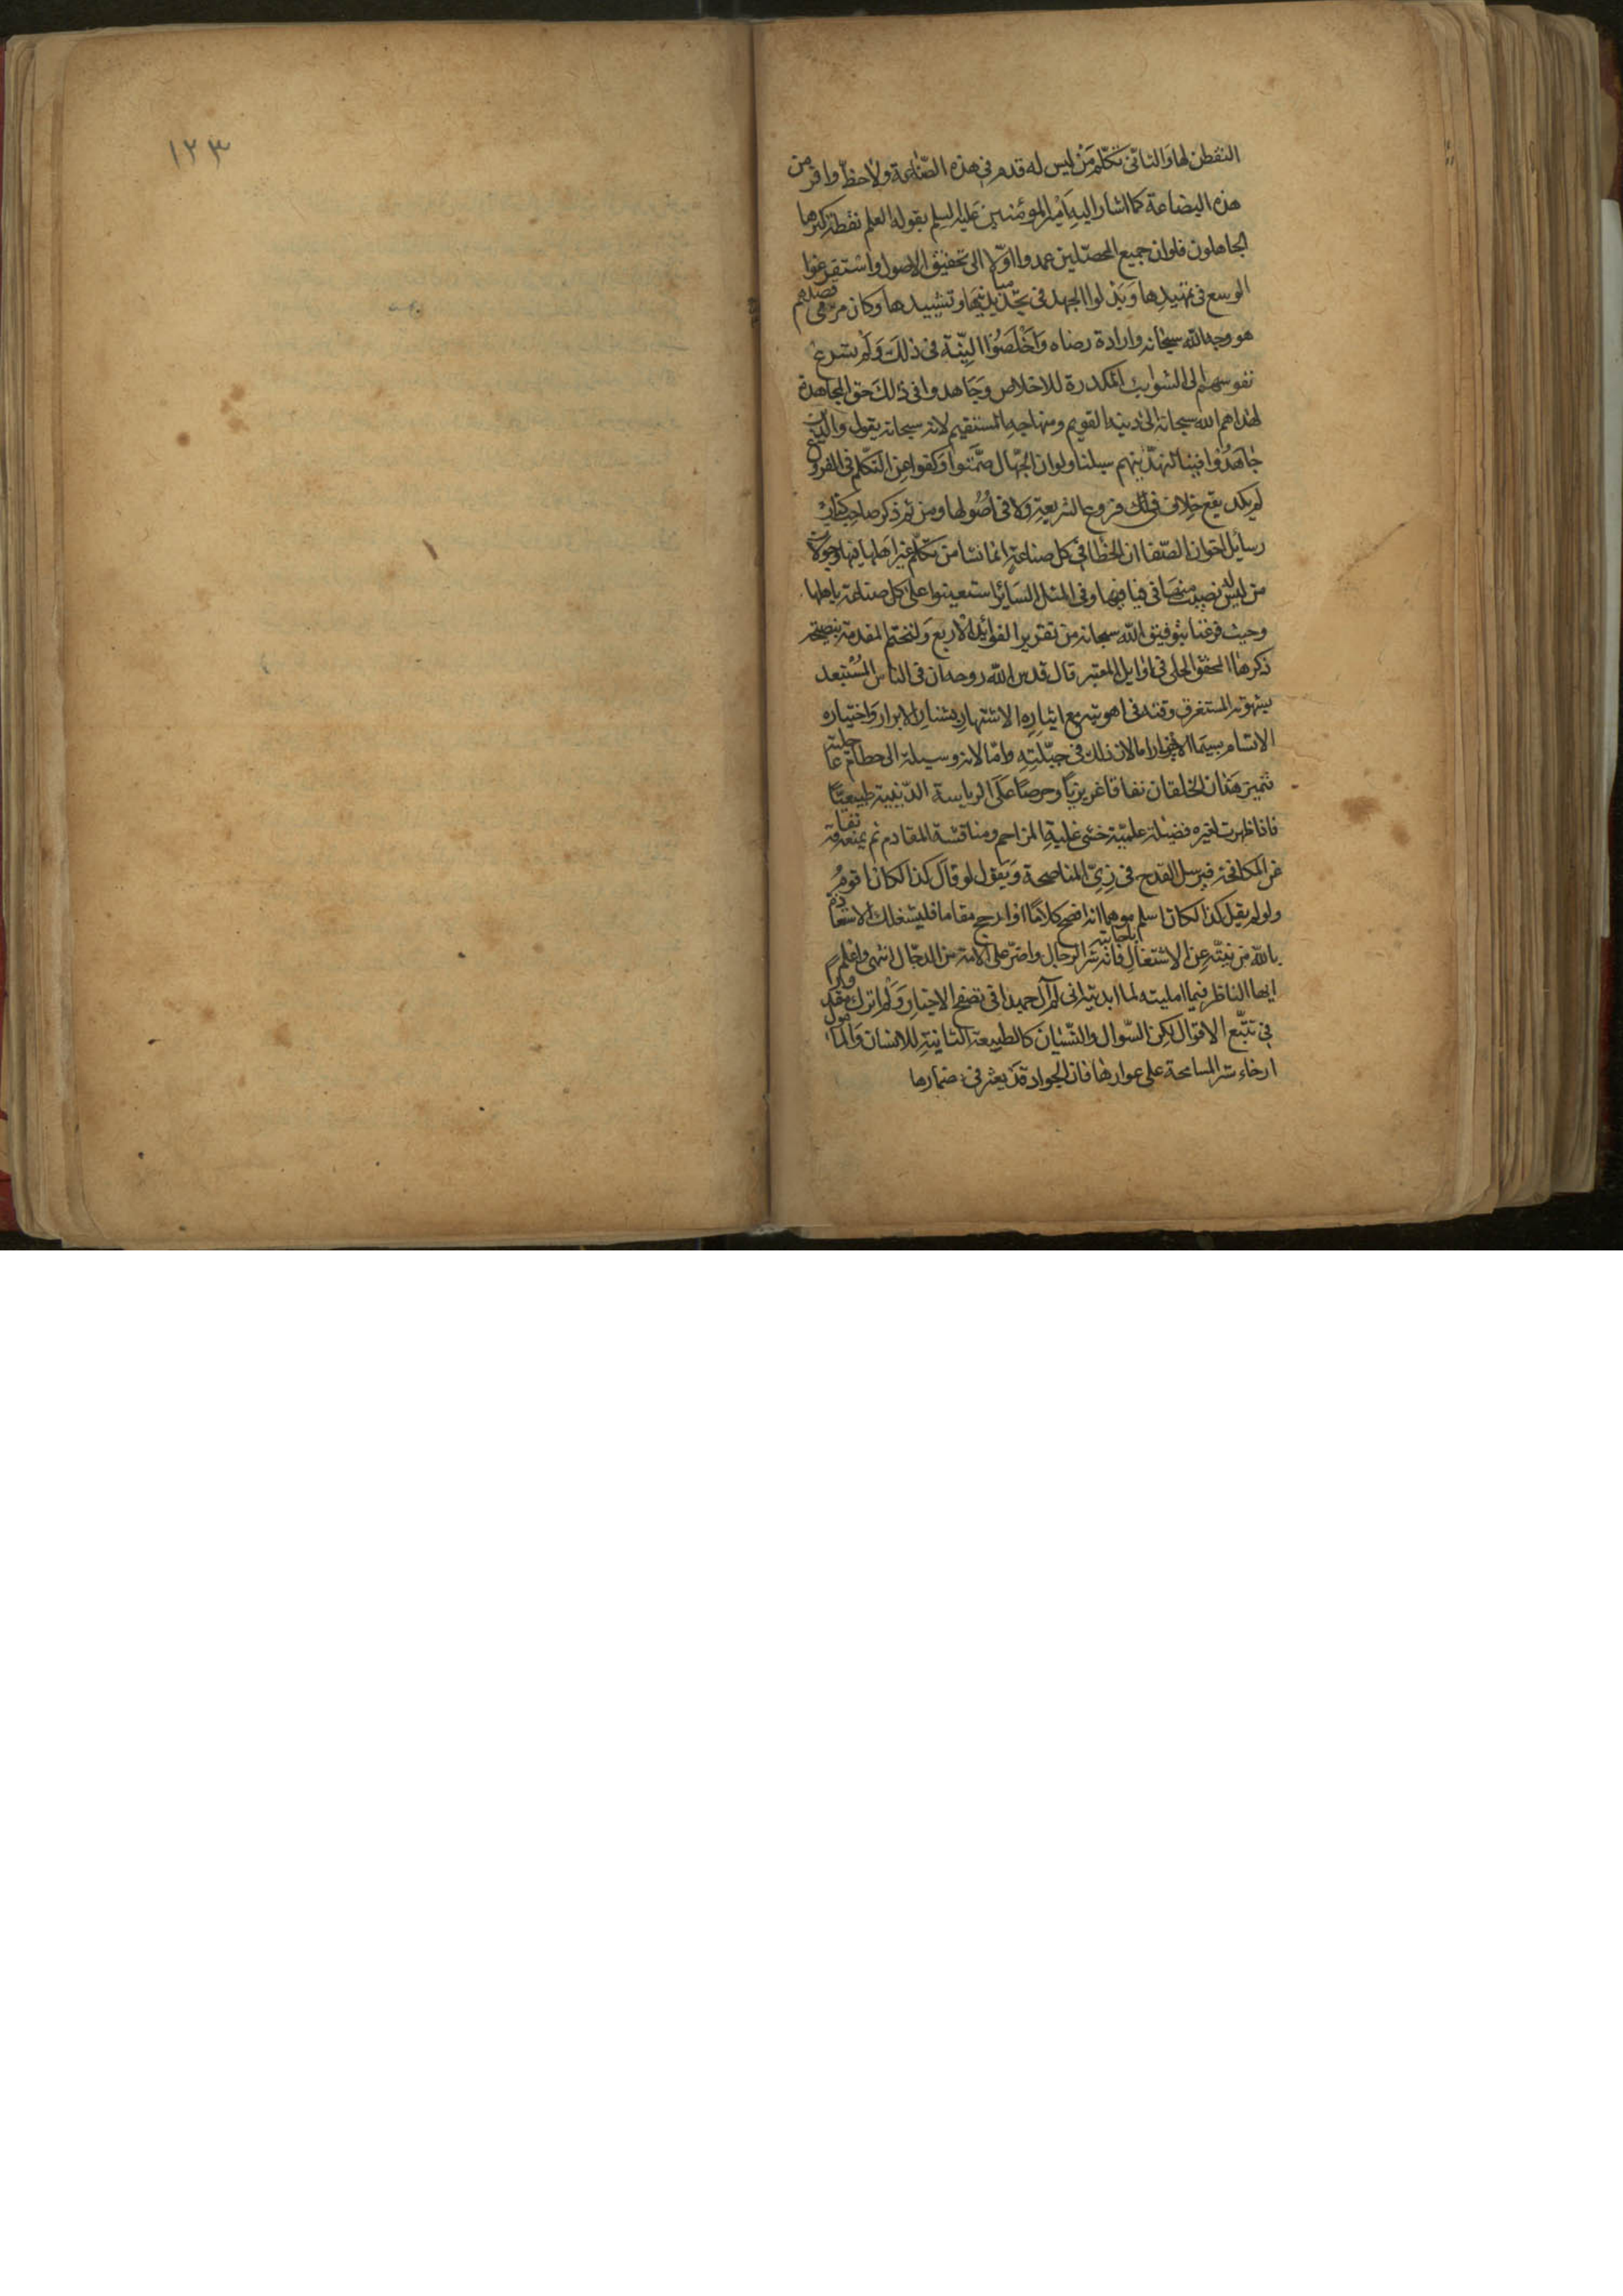 التفطن لها والثاني تكلم من ليس له قدم في هذه الصناعة ولا حظ وافر من
هذه البضاعة كما اشار اليه امير المؤمنين عليه السلم بقوله العلم نقطة كثرها
الجاهلون فلو ان جميع المحصلين عمدوا اولا الى تحقيق الاصول واستفرغوا
الوسع في تمهيدها وبذلوا الجهد في تجديد وتشييدها وكان مرمى قصدهم
هو وجه الله سبحانه وارادة رضاه واخلصوا النية في ذلك ولم تسرع
نفوسهم الى الشوايب المكدرة للاخلاص وجاهدوا في ذلك حق المجاهدة
لهداهم الله سبحانه الى دينه القويم ومنهاجه المستقيم لانه سبحانه يقول والذين
جاهدوا فينا لنهدينهم سبلنا ولو ان الجهال صمتوا وكفوا عن التكلم في الفروع
لم يكد يقع خلاف في فروع الشريعة ولا في اصولها ومن ثم ذكر صاحب كتاب
رسايل اخوان الصفا ان الخطا في كل صناعة انما نشا من تكلم غير اهلها فيها
من ليس له نصيب منها في فيافيها وفي المثل الساير استعينوا على كل صناعة باهلها
وحيث فرغنا بتوفيق الله سبحانه من تقرير الفوائد الاربع ولنختم المقدمة بنصيحة
ذكرها المحقق الحلي في اوايل المعتبر قال قدس الله روحه ان في الناس المستعبد
بشهوته المستغرق وقته في اهويته مع ايثاره الاشتهار بشنار الابرار واختياره
الاتسام بسيما الاخيار اما لان ذلك في جبلته واما لانه وسيلة الى حطام عاجلته
فتميز هذان الخلقان نفاقا غريزيا وحرصا على الرياسة الدينية طبيعيا
فاذا ظهرت لغيره فضيلة علمية خشي غلبة المزاحم ومناقشة المقادم ثم يمنعه نفاقه
عن المكافحة فيرسل القدح في زي المناصحة ويقول لو قال كذا لكان اقوم
ولو لم يقل كذا لكان اسلم موهما انه افصح كلاما او ارجح مقاما فليشغلك الاستعاذة
بالله من بليته عن الاشتغال باجابته فانه شر الرجال واضر على الامة من الدجال انتهى واعلم
ايها الناظر فيما امليته لما ابديته اني لم آل جهدا في تصفح الاخبار ولم اترك مقدورا
في تتبع الاقوال لكن السؤال والنسيان كالطبيعة الثانية للانسان والمأمول
ارخاء ستر المسامحة على عوارها فان الجواد قد يعثر في مضمارها
١٢٣